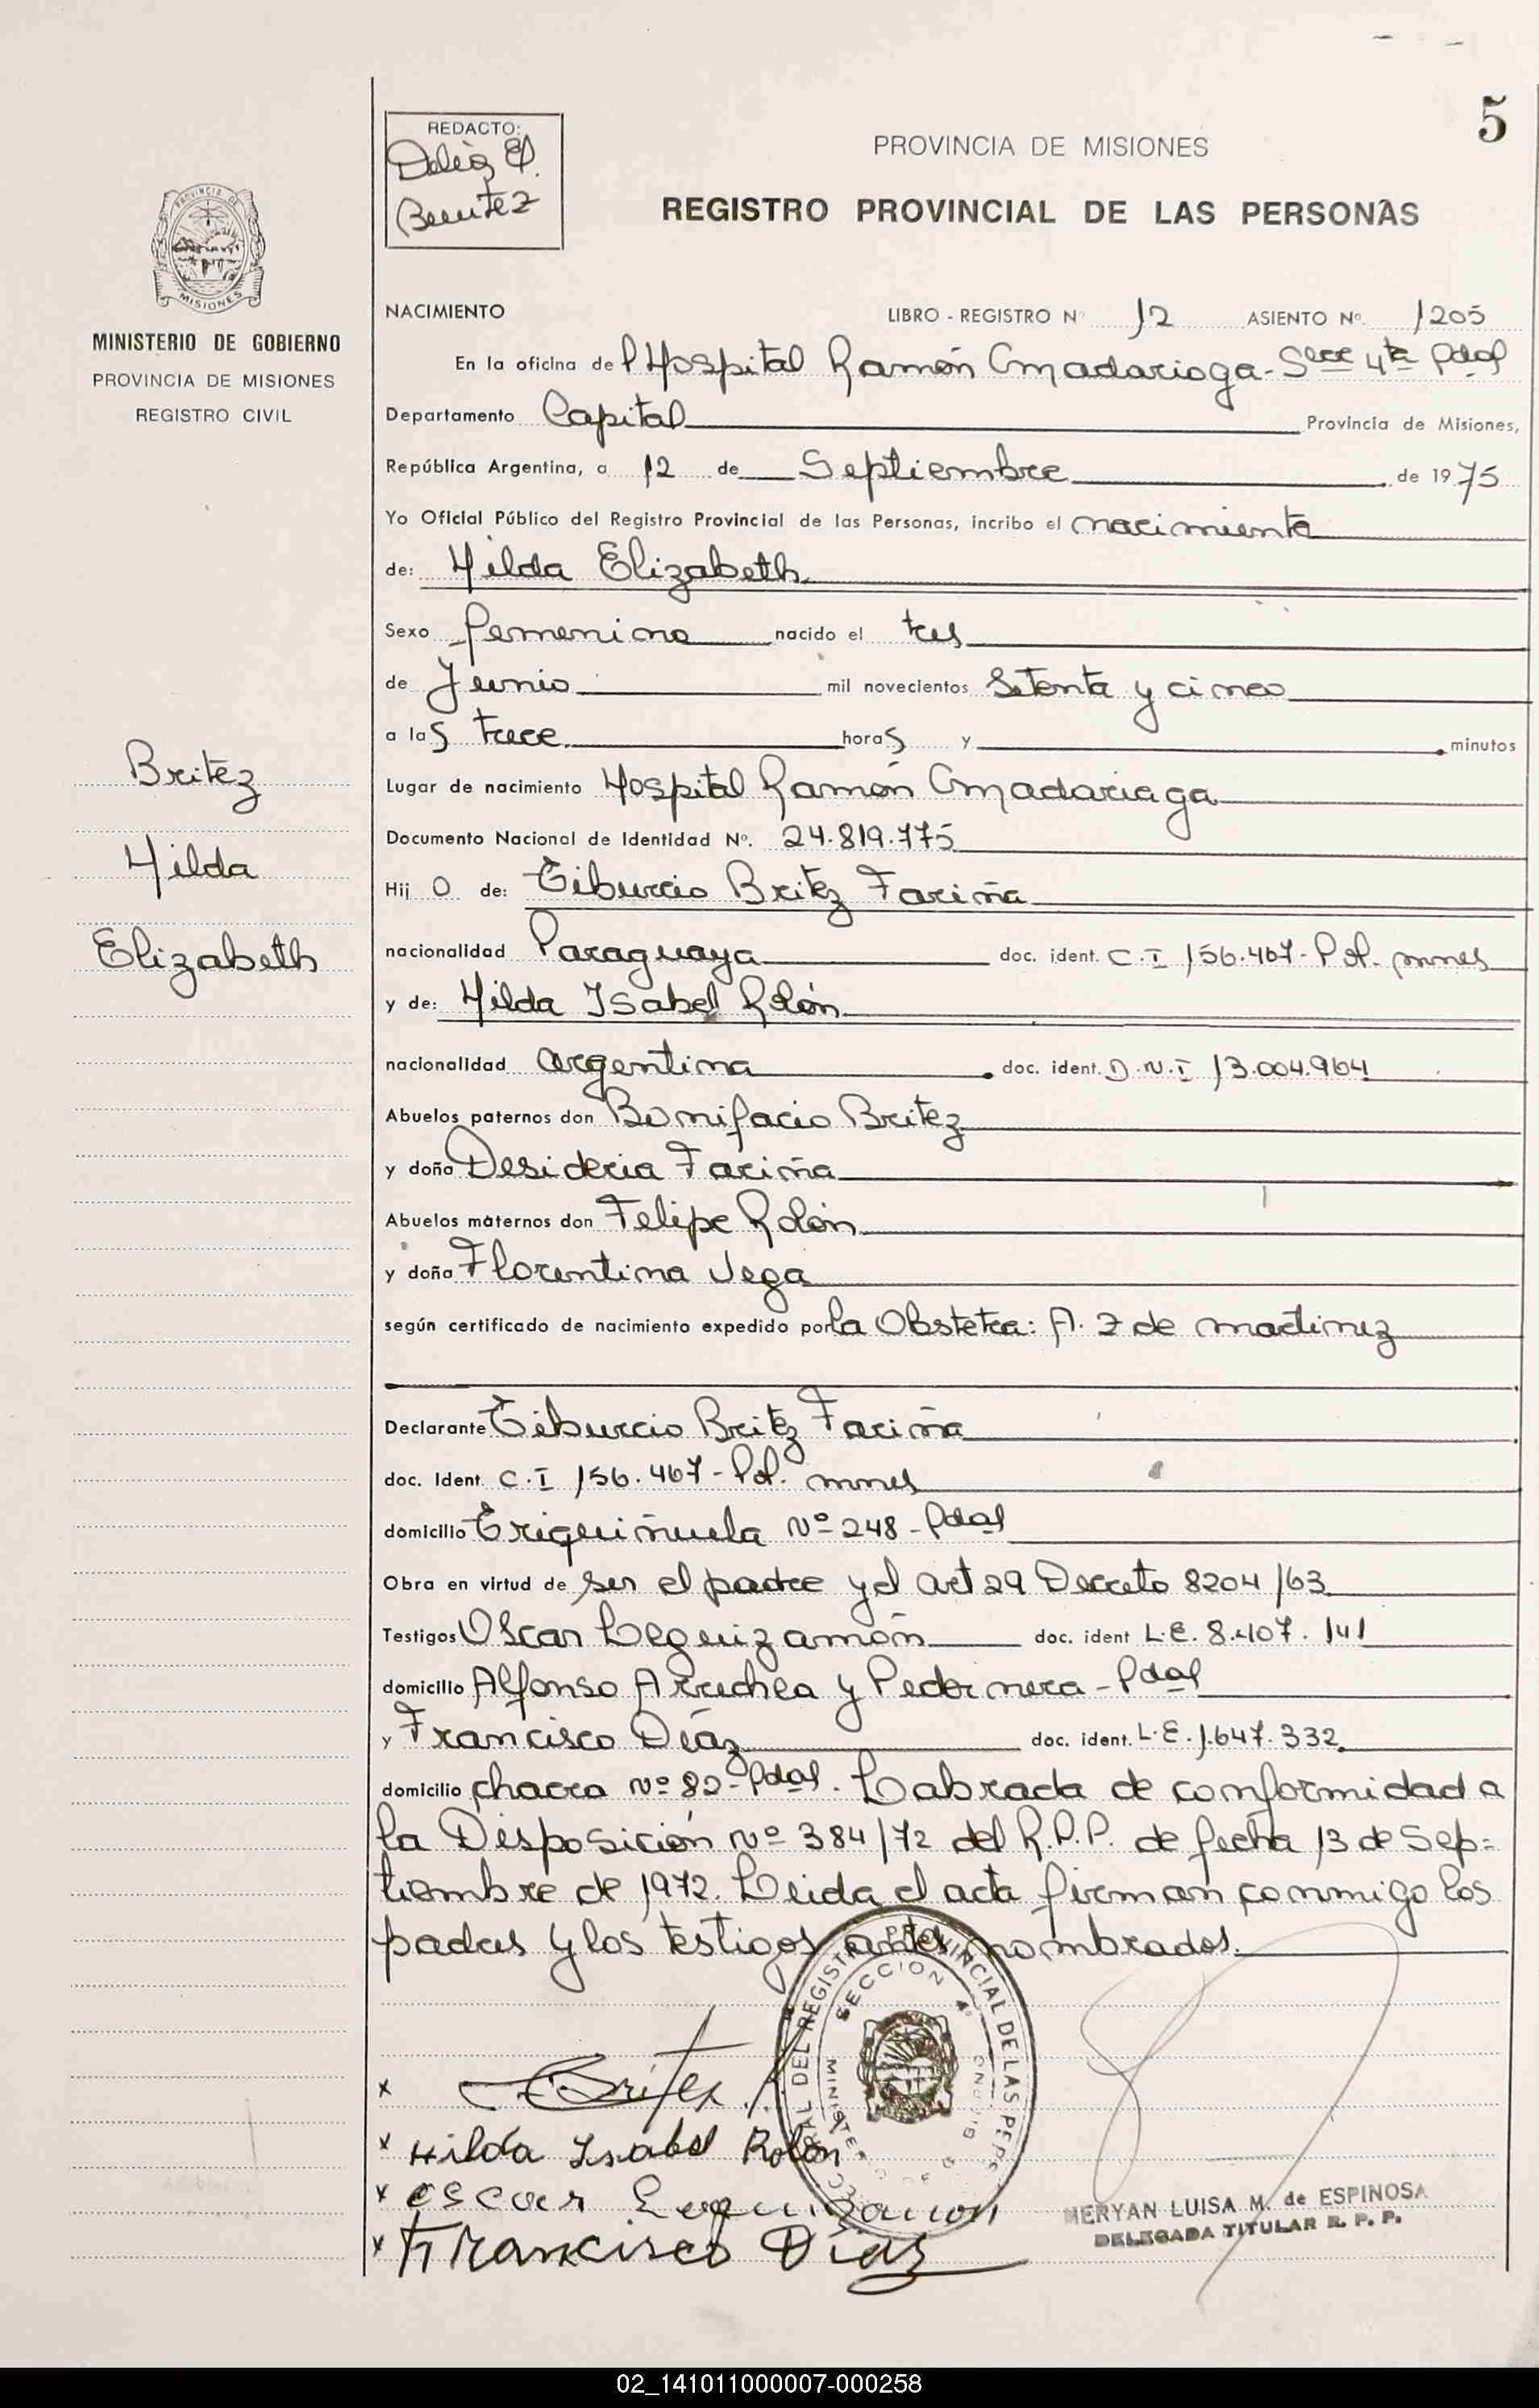 5
REDACTO:
Delia E.
Benitez
PROVINCIA DE MISIONES
REGISTRO PROVINCIAL DE LAS PERSONAS
PROVINCIA DE
MISIONES
MINISTERIO DE GOBIERNO
PROVINCIA DE MISIONES
REGISTRO CIVIL
NACIMIENTO LIBRO - REGISTRO Nº 12 ASIENTO Nº. 1205
En la oficina de l Hospital Ramón Madariaga - Secc 4ta Pdas
Departamento Capital Provincia de Misiones,
República Argentina, a 12 de Septiembre de 1975
Yo Oficial Público del Registro Provincial de las Personas, incribo el nacimiento
de: Hilda Elizabeth
Sexo femenino nacido el tres
de Junio mil novecientos Setenta y cinco
a las trece horas y minutos
Lugar de nacimiento Hospital Ramón Madariaga
Documento Nacional de Identidad Nº. 24.819.775
Hij o de: Tiburcio Britez Fariña
nacionalidad Paraguaya doc. ident. C.I 156.467 - Pol. mnes
y de: Hilda Isabel Rolón
nacionalidad argentina doc. ident. D.N.I 13.004.964
Abuelos paternos don Bonifacio Britez
y doña Desideria Fariña
Abuelos maternos don Felipe Rolón
y doña Florentina Vega
según certificado de nacimiento expedido por la Obstetra: A. Z de Martinez
Declarante Tiburcio Britez Fariña
doc. Ident. C.I 156.467 - Pol. mnes
domicilio Eriquiñuela Nº 248 - Pdas
Obra en virtud de ser el padre y el art 29 Decreto 8204/63
Testigos Oscar Leguizamón doc. ident L.E. 8.407.141
domicilio Alfonso Arrechea y Pedernera - Pdas
y Francisco Díaz doc. ident. L.E. 1.647.332
domicilio chacra Nº 82 - Pdas. Labrada de conformidad a
la Disposición Nº 384/72 del R.P.P. de fecha 13 de Sep=
tiembre de 1972. Leida el acta firman conmigo los
padres y los testigos antes nombrados.
Britez
Hilda
Elizabeth
x Britez
x Hilda Isabel Rolón
x oscar Leguizamon
x Francisco Diaz
DEL REGISTRO PROVINCIAL DE LAS PERS
SECCION 4ª
MERYAN LUISA M. de ESPINOSA
DELEGADA TITULAR R. P. P.
02_141011000007-000258